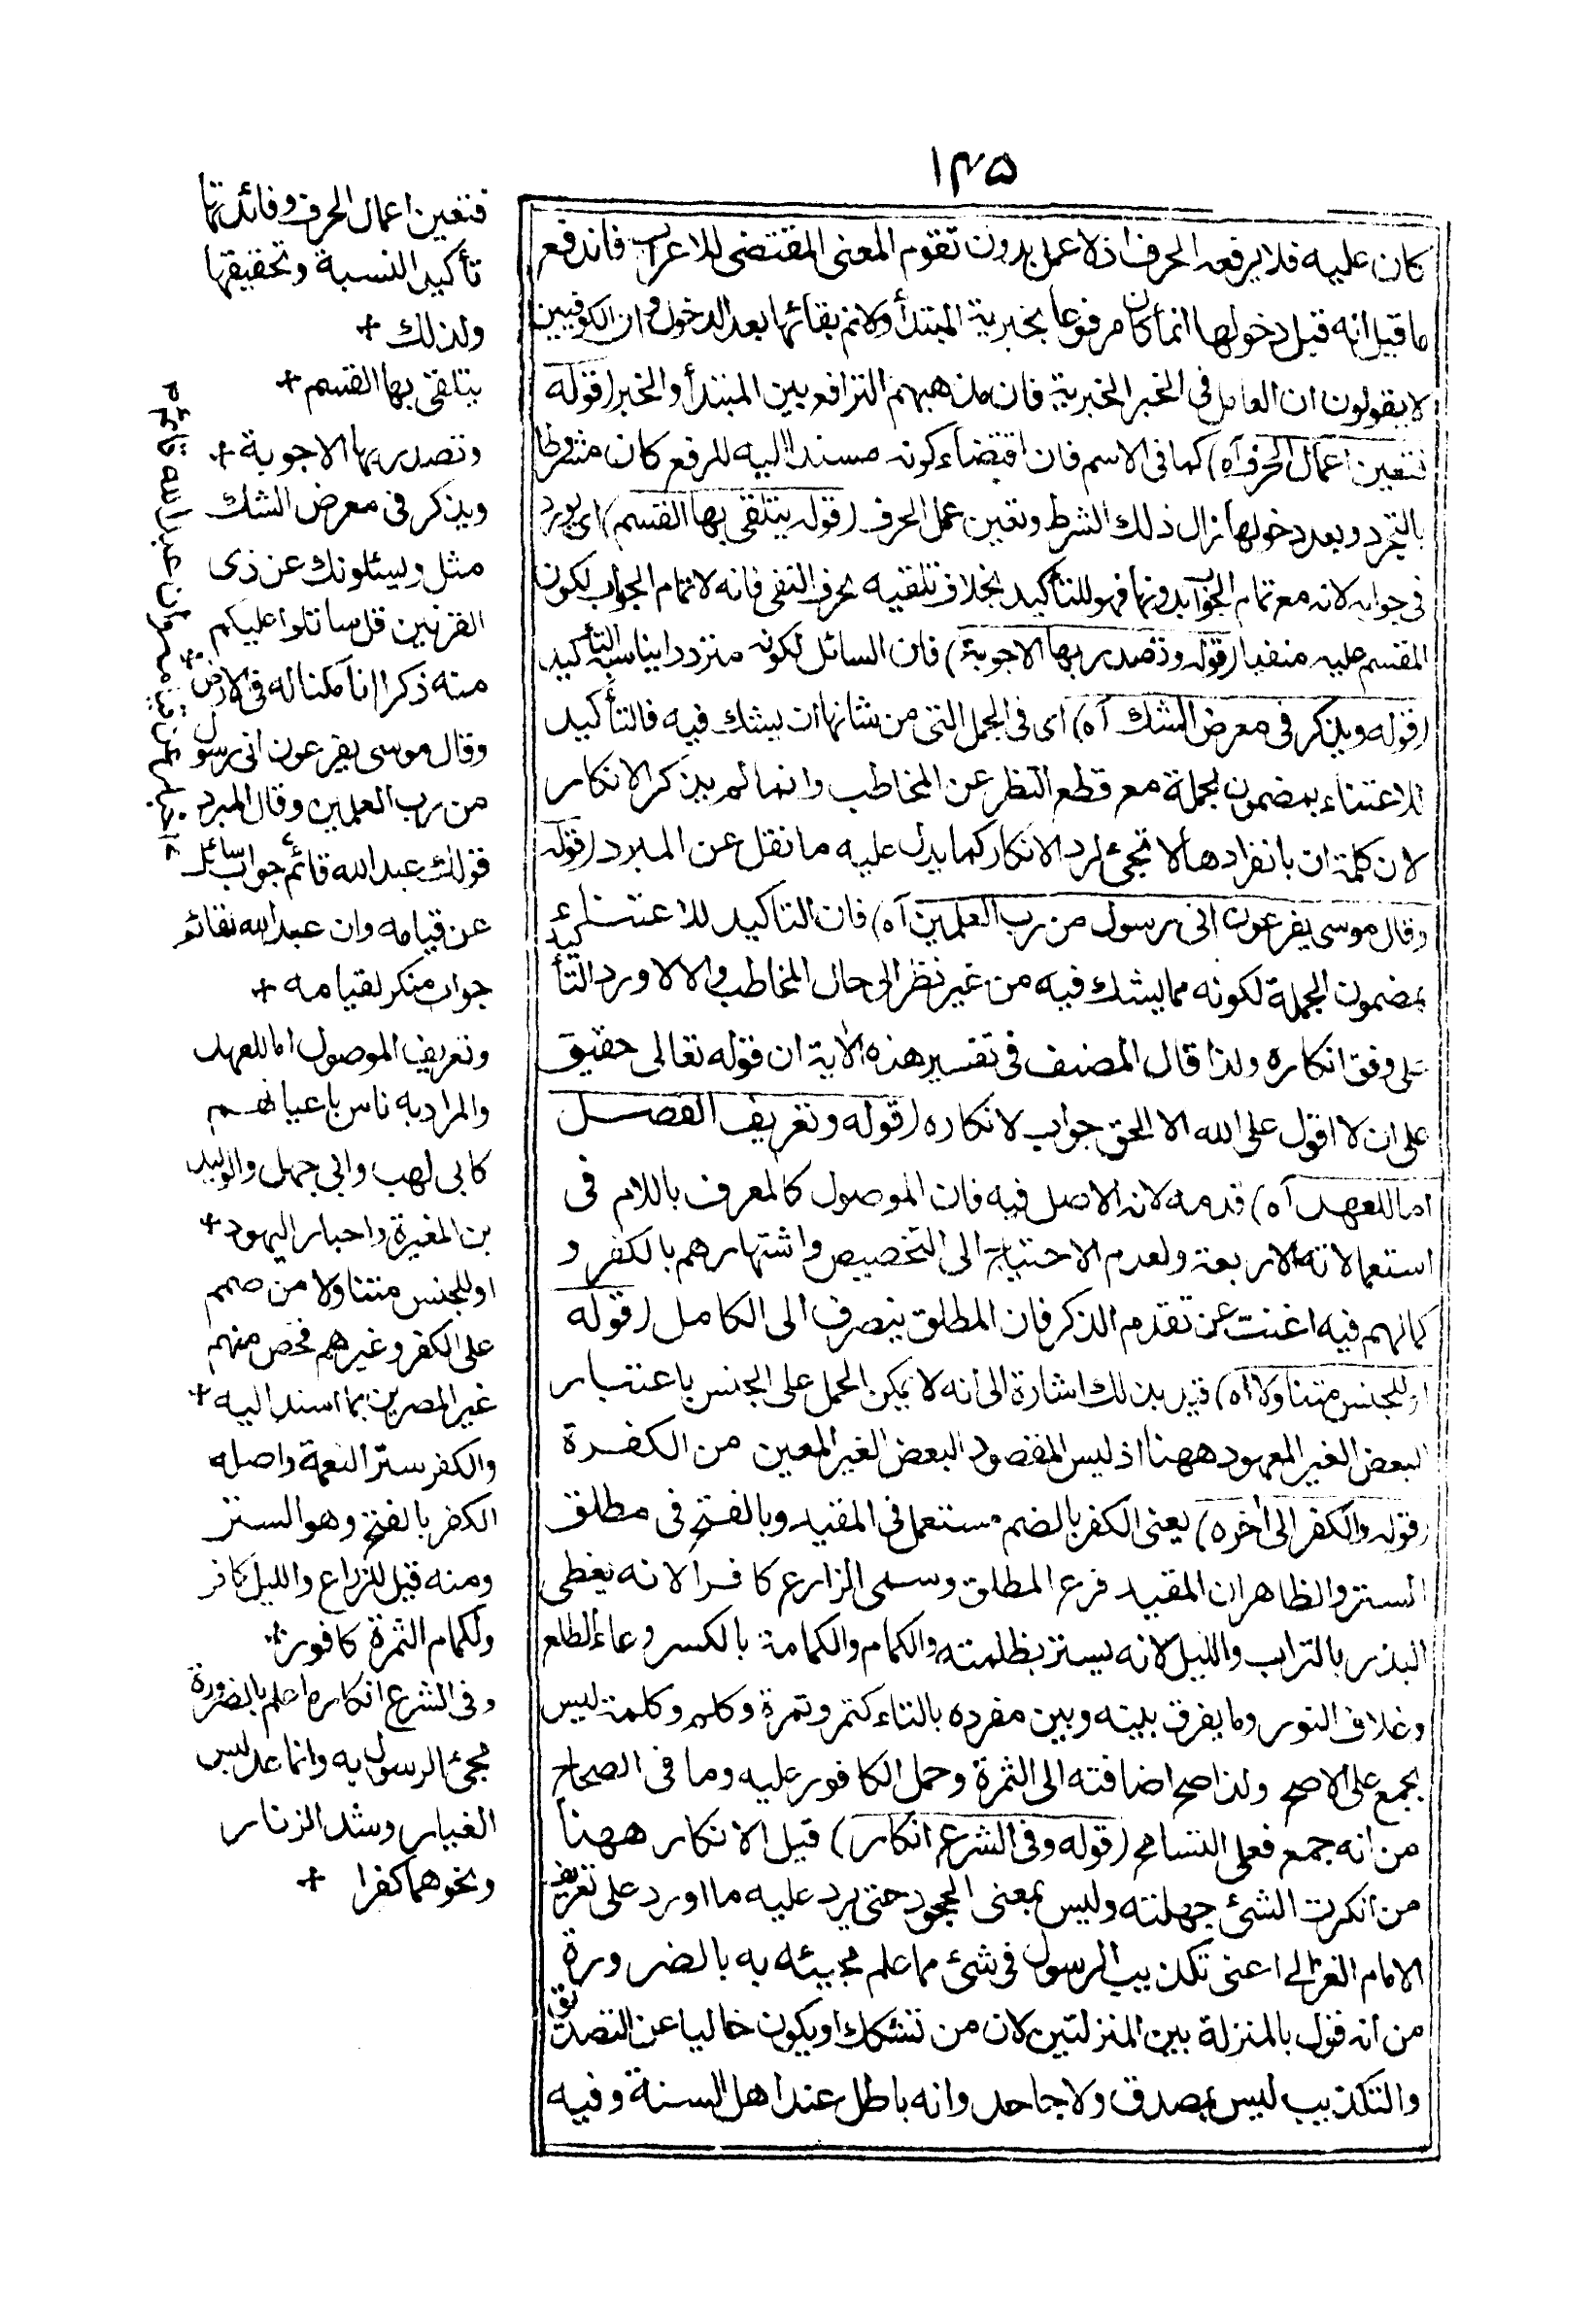 ١٣٥
كان عليه فلا يرفعه الحرف اذ لا عمل بدون تقوم المعنى المقتضى للاعراب فاندفع
ما قيل انه قبل دخولها انما كان مرفوعا بخبرية المبتدأ ولانم بقائها بعد الدخول وان الكوفيين
لا يقولون ان العامل فى الخبر الخبرية فان مذهبهم الترافع بين المبتدأ والخبر (قوله
فتعين اعمال الحرف آه) كما فى الاسم فان اقتضاء كونه مسندا اليه للرفع كان مشروطا
بالتجرد وبعد دخولها زال ذلك الشرط وتعين عمل الحرف (قوله يتلقى بها القسم) اى يورد
فى جوابه لانه مع تمام الجواب بدونها فهو للتأكيد بخلاف تلقيه بحرف النفى فانه لاتمام الجواب لكون
المقسم عليه منفيا (قوله وتصدر بها الاجوبة) فان السائل لكونه مترددا يناسبه التأكيد
(قوله ويذكر فى معرض الشك آه) اى فى الجمل التى من شانها ان يشك فيه فالتأكيد
للاعتناء بمضمون الجملة مع قطع النظر عن المخاطب وانما لم يذكر الانكار
لان كلمة ان بانفرادها لا تجئ لرد الانكار كما يدل عليه ما نقل عن المبرد (قوله
وقال موسى يفرعون انى رسول من رب العلمين آه) فان التاكيد للاعتناء
بمضمون الجملة لكونه مما يشك فيه من غير نظر الى حال المخاطب والا لاورد التأكيد
على وفق انكاره ولذا قال المصنف فى تفسير هذه الاية ان قوله تعالى حقيق
على ان لا اقول على الله الا الحق جواب لانكاره (قوله وتعريف الفصل
اما للعهد آه) قدمه لانه الاصل فيه فان الموصول كالمعرف باللام فى
استعمالاته الاربعة ولعدم الاحتياج الى التخصيص واشتهارهم بالكفر و
كمالهم فيه اغنت عن تقدم الذكر فان المطلق ينصرف الى الكامل (قوله
او للجنس متناولا آه) قيد بذلك اشارة الى انه لا يمكن الحمل على الجنس باعتبار
البعض الغير المعهود ههنا اذ ليس المقصود البعض الغير المعين من الكفرة
(قوله والكفر الى آخره) يعنى الكفر بالضم مستعمل فى المقيد وبالفتح فى مطلق
الستر والظاهر ان المقيد فرع المطلق وسمى الزارع كافرا لانه يغطى
البذر بالتراب والليل لانه يستر بظلمته والكمام والكمامة بالكسر وعاء الطلع
وغلاف النور وما يفرق بينه وبين مفرده بالتاء كتمر وتمرة وكلم وكلمة ليس
بجمع على الاصح ولذا صح اضافته الى الثمرة وحمل الكافور عليه وما فى الصحاح
من انه جمع فعلى التسامح (قوله وفى الشرع انكار) قيل الانكار ههنا
من انكرت الشئ جهلته وليس بمعنى الجحود حتى يرد عليه ما اورد على تعريف
الامام الغزالى اعنى تكذيب الرسول فى شئ مما علم مجيئه به بالضرورة
من انه قول بالمنزلة بين المنزلتين لان من تشكك او يكون خاليا عن التصديق
والتكذيب ليس بمصدق ولا جاحد وانه باطل عند اهل السنة وفيه
فتعين اعمال الحرف وفائدتها
تأكيد النسبة وتحقيقها
ولذلك +
يتلقى بها القسم +
وتصدر بها الاجوبة +
ويذكر فى معرض الشك
مثل ويسئلونك عن ذى
القرنين قل ساتلوا عليكم
منه ذكرا انا مكنا له فى الارض
وقال موسى يفرعون انى رسول
من رب العلمين وقال المبرد
قولك عبد الله قائم جواب سائل
عن قيامه وان عبد الله لقائم
جواب منكر لقيامه +
وتعريف الموصول اما للعهد
والمراد به ناس باعيانهم
كابى لهب وابى جهل والوليد
بن المغيرة واحبار اليهود +
او للجنس متناولا من صمم
على الكفر وغيرهم فخص منهم
غير المصرين بما اسند اليه +
والكفر ستر النعمة واصله
الكفر بالفتح وهو الستر
ومنه قيل للزراع والليل كافر
ولكمام الثمرة كافور +
وفى الشرع انكار ما علم بالضرورة
مجئ الرسول به وانما عد لبس
الغيار وشد الزنار
ونحوهما كفرا +